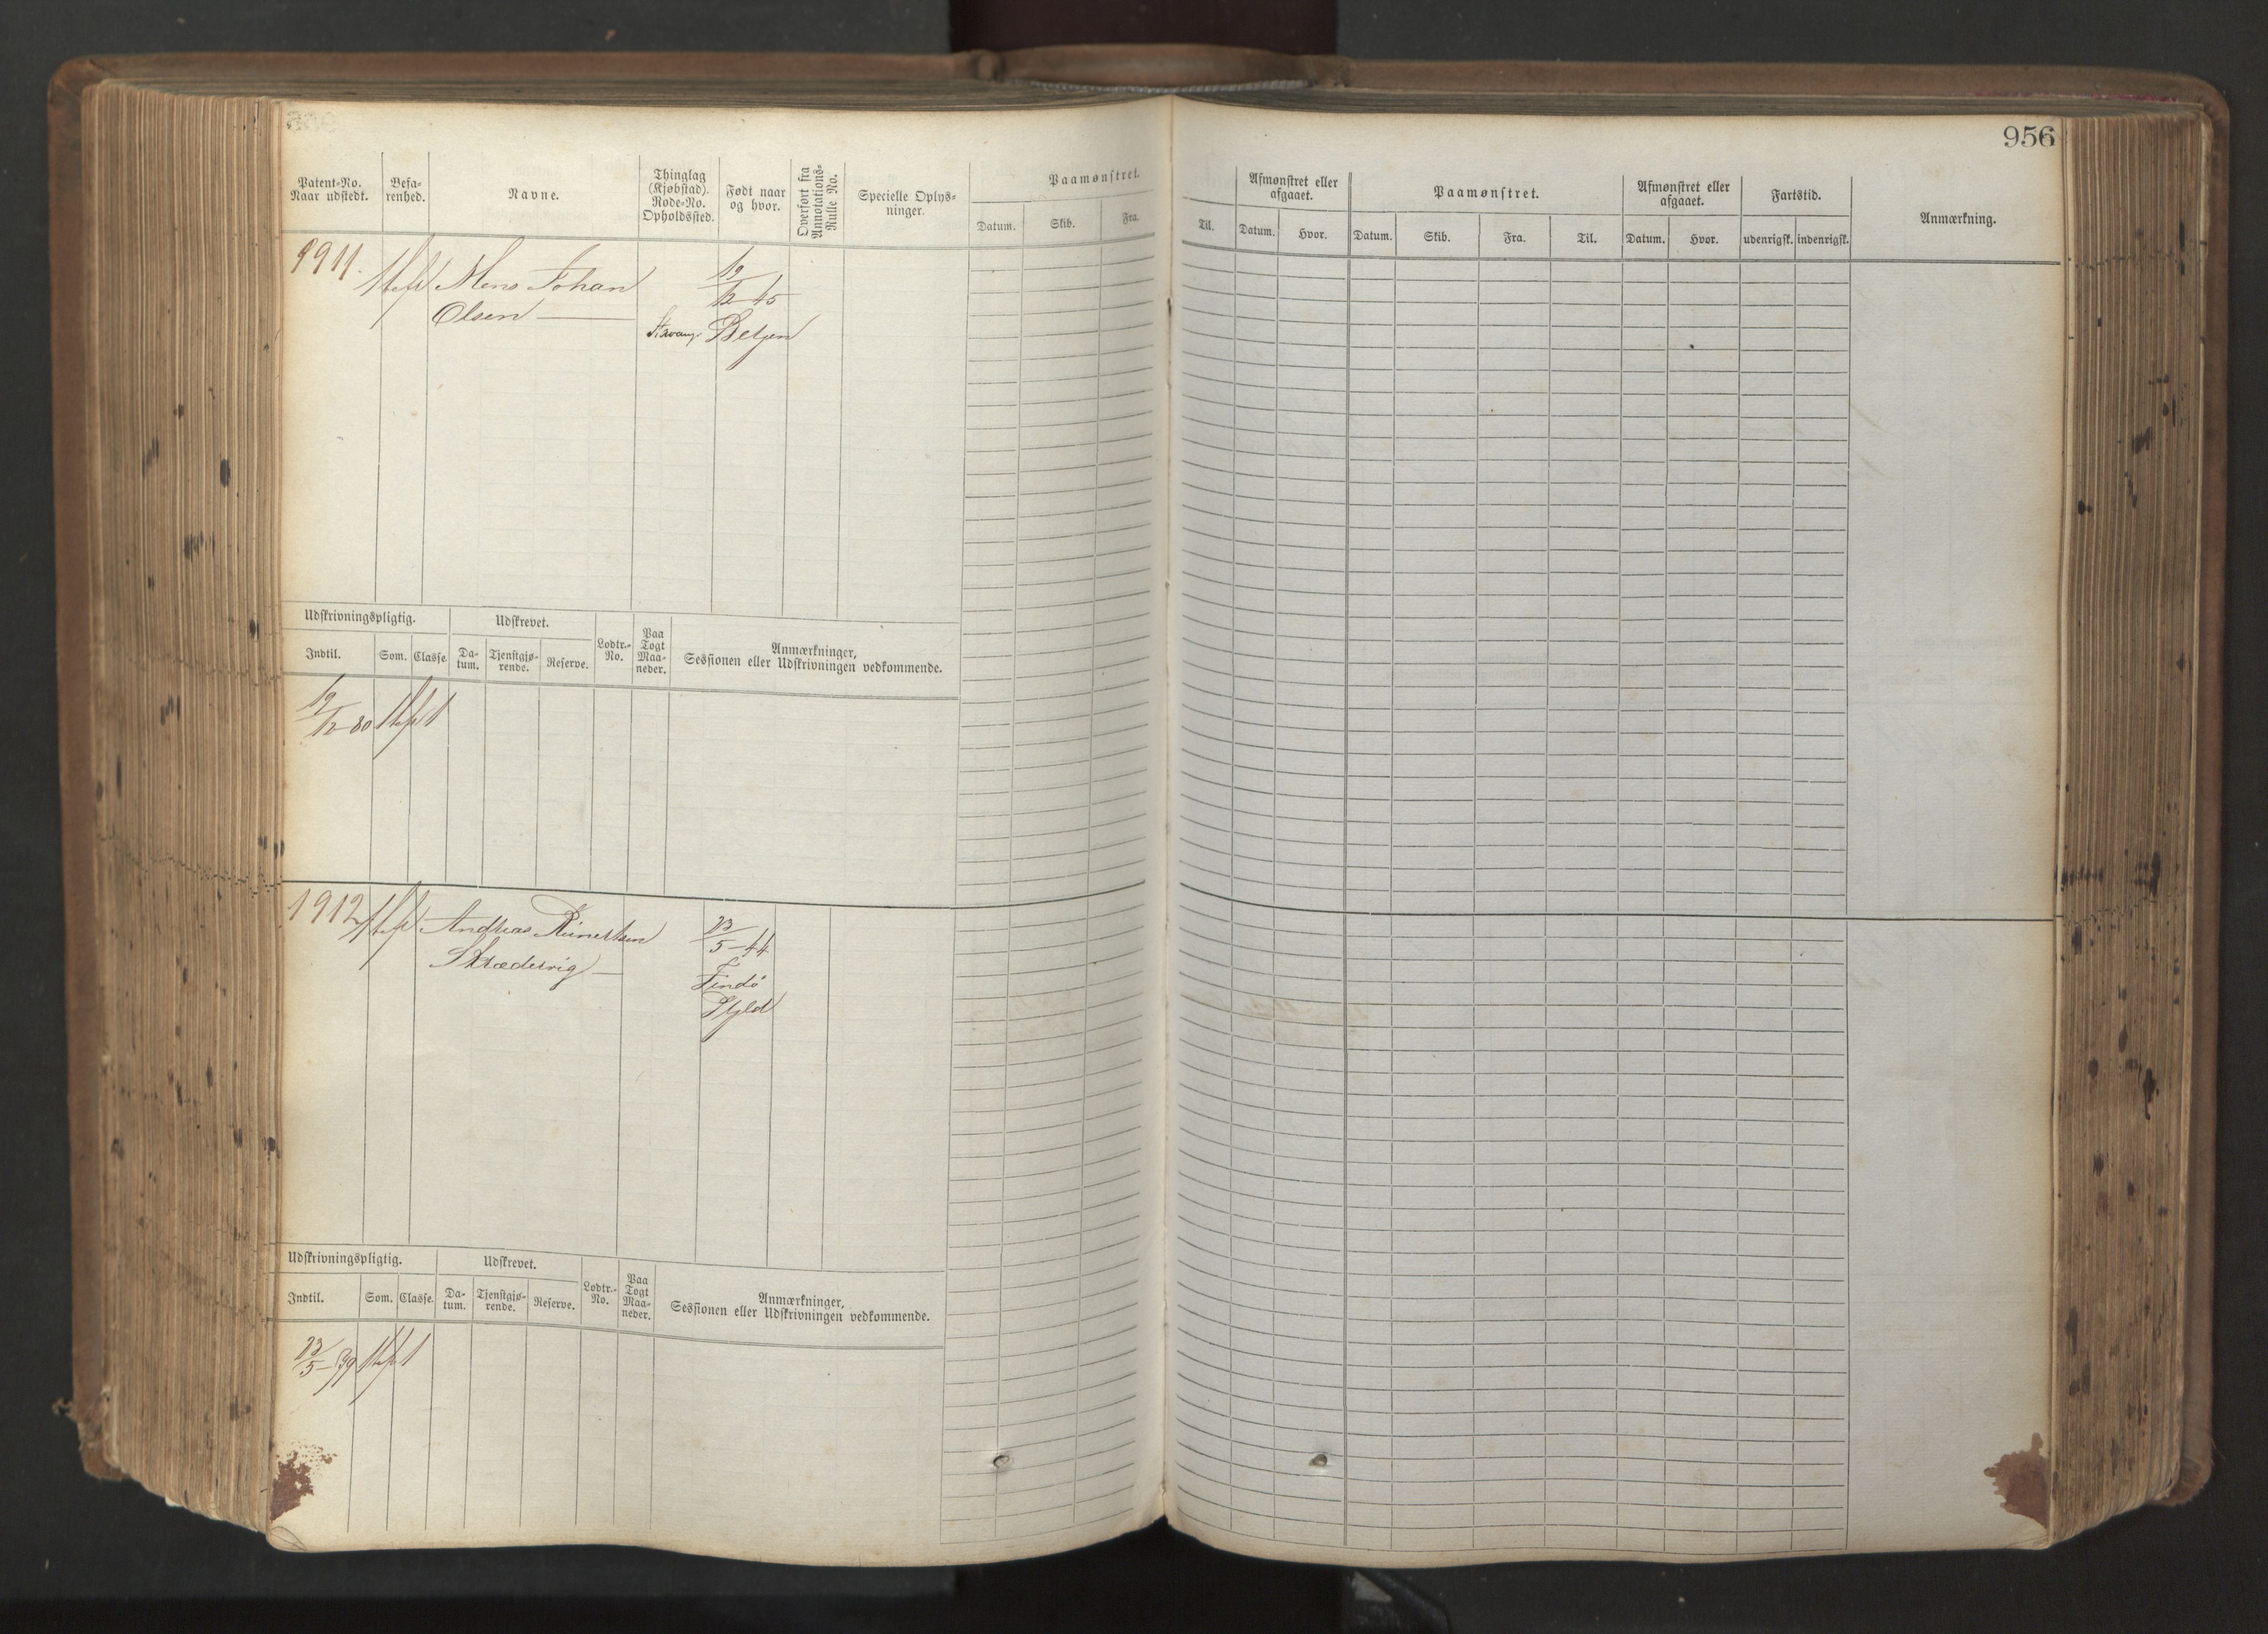 956
Patent-No. Naar udstedt.
Befa-renhed.
Navne.
Thinglag (Kjøbstad). Rode-No. Opholdssted.
Født naar og hvor.
Overført fra Annotations-Rulle No.
Specielle Oplys-ninger.
Paamønstret.
Datum. Skib. Fra. Til.
Afmønstret eller afgaaet.
Datum. Hvor.
Paamønstret.
Datum. Skib. Fra. Til.
Afmønstret eller afgaaet.
Datum. Hvor.
Fartstid.
udenrigsk. indenrigsk.
Anmærkning.
1911
Mons Johan
Olsen
19/12 45
Bergen
Udskrivningspligtig.
Indtil. Som. Classe.
Udskrevet.
Da-tum. Tjenstgjø-rende. Reserve.
Lodtr.-No.
Paa Togt Maa-neder.
Anmærkninger,
Sessionen eller Udskrivningen vedkommende.
19/12 80 1
1912
Andreas
23/5-44
Findö
Udskrivningspligtig.
Indtil. Som. Classe.
Udskrevet.
Da-tum. Tjenstgjø-rende. Reserve.
Lodtr.-No.
Paa Togt Maa-neder.
Anmærkninger,
Sessionen eller Udskrivningen vedkommende.
23/5-79 1